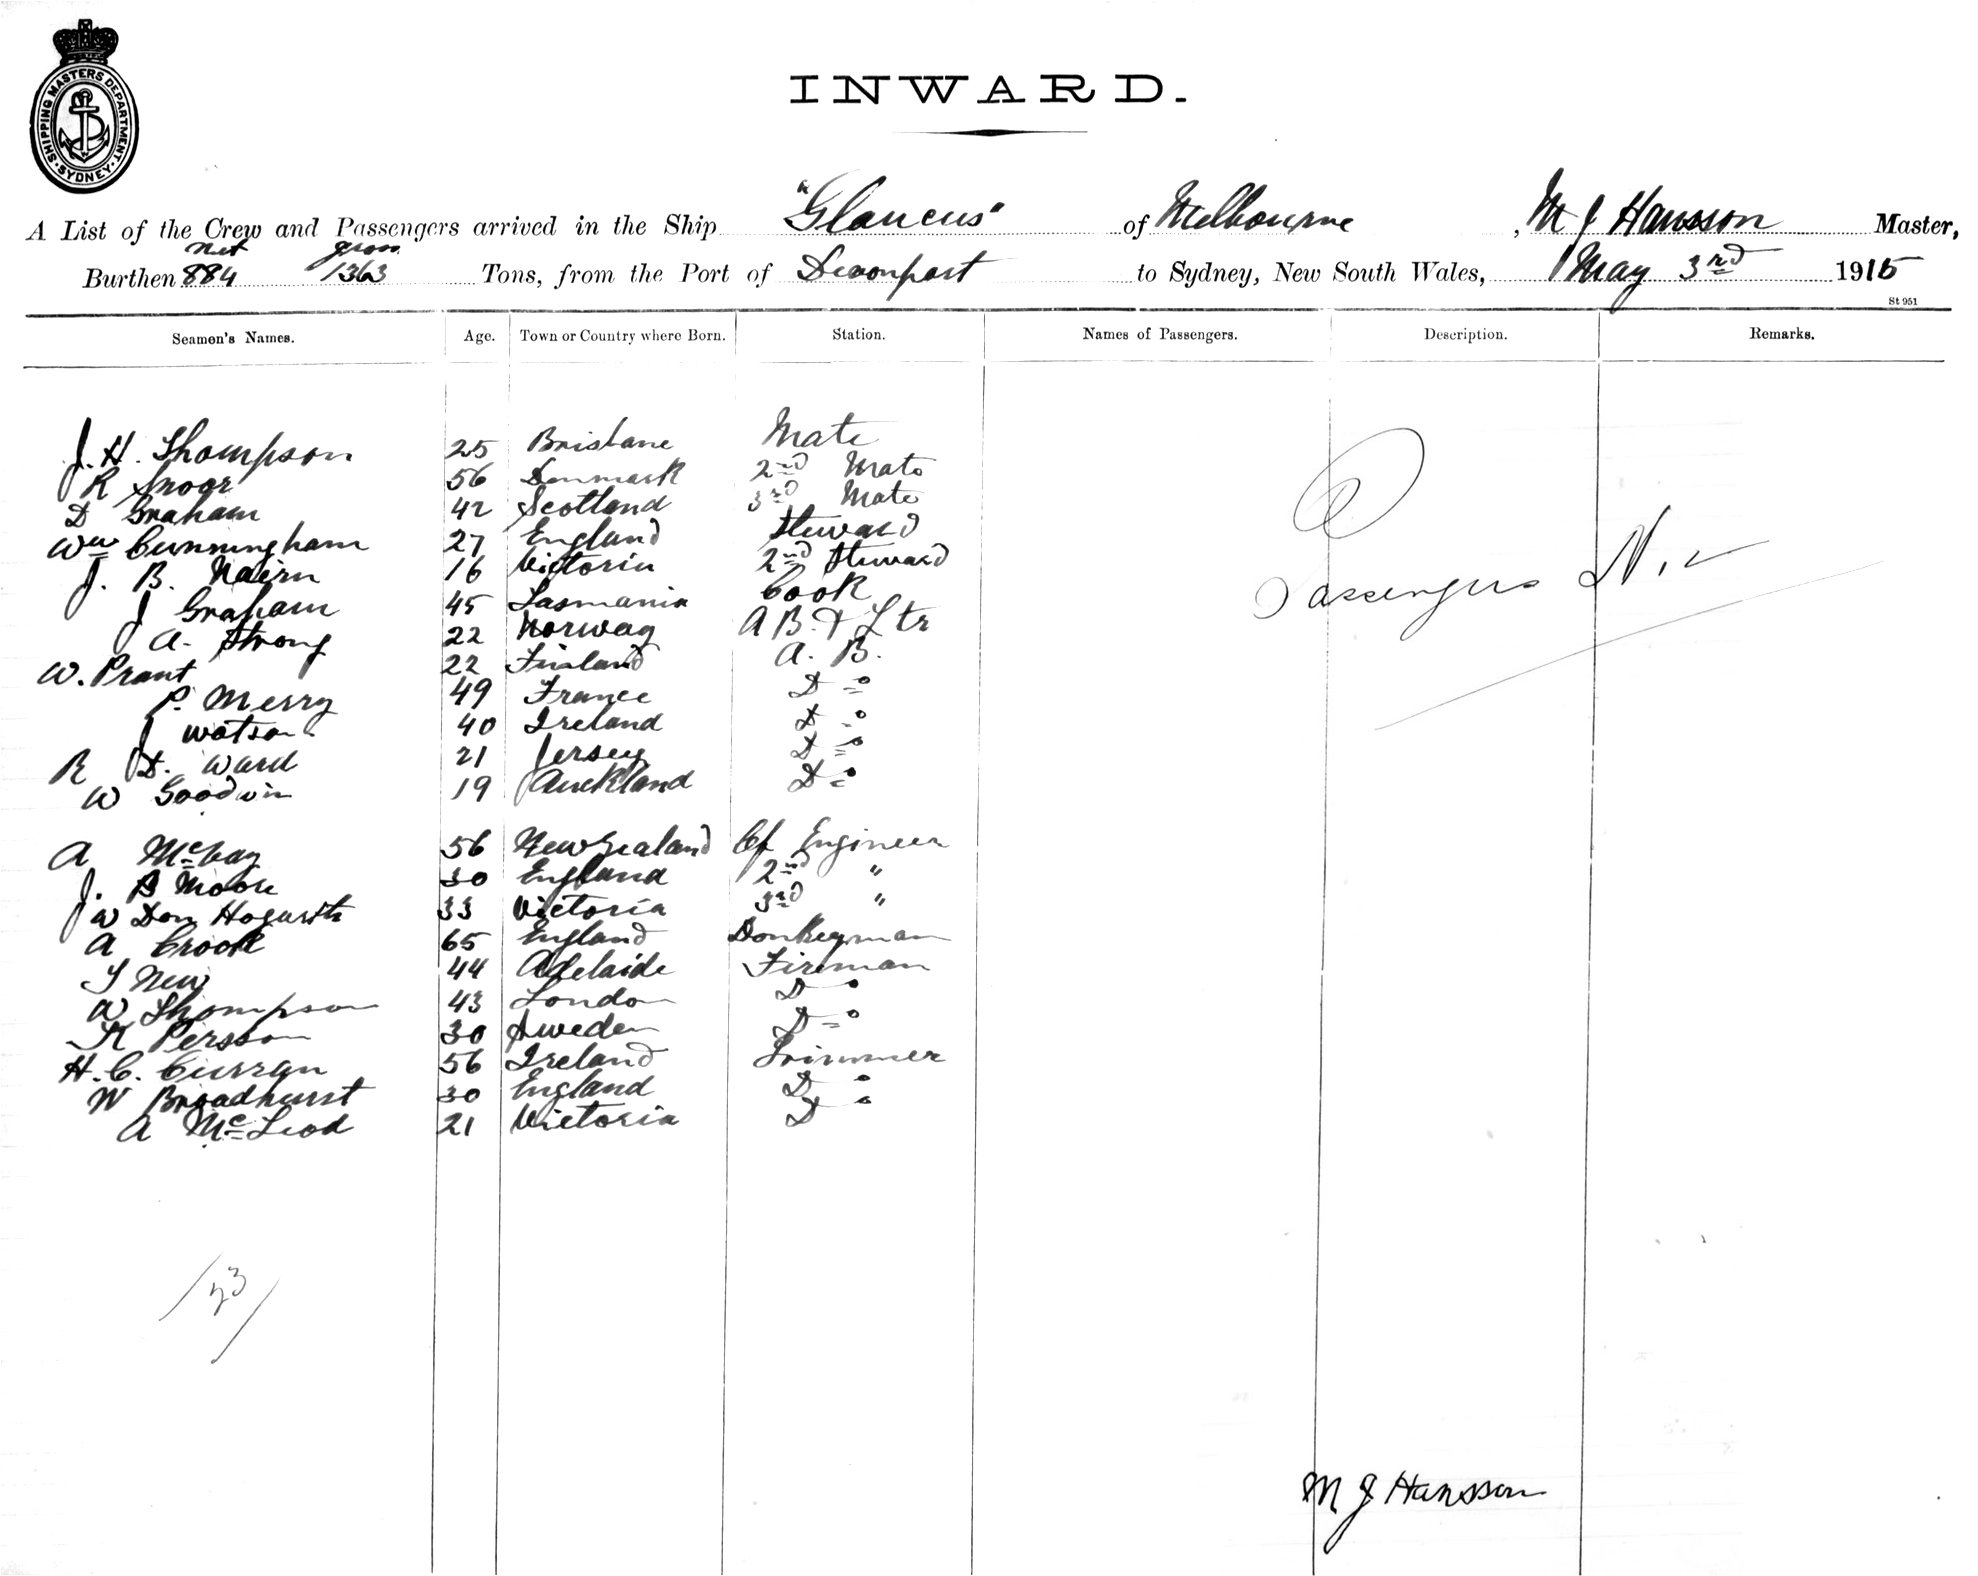 SHIPPING MASTERS DEPARTMENT. SYDNEY.
INWARD.
A List of the Crew and Passengers arrived in the Ship "Glaucus" of Melbourne, M J Hansson Master,
Burthen net 884 gross 1363 Tons, from the Port of Devonport to Sydney, New South Wales, May 3rd 1915
St 951
Seamen's Names. Age. Town or Country where Born. Station. Names of Passengers. Description. Remarks.
J. H. Thompson 25 Brisbane Mate
R 56 Denmark 2nd Mate
D Graham 42 Scotland 3rd Mate
Wm Cunningham 27 England Steward
J. B. Nairn 16 Victoria 2nd Steward
J Graham 45 Tasmania Cook
A. Strong 22 Norway A B. & Ltr
W. Prant 22 Finland A. B.
P. Merry 49 France Do
J Watson 40 Ireland Do
R D. Ward 21 Jersey Do
W Goodwin 19 Auckland Do
Passengers Nil
A McCay 56 New Zealand Cf Engineer
J. B Moore 30 England 2nd "
J W Don Hogarth 33 Victoria 3rd "
A Crook 65 England Donkeyman
T New 44 Adelaide Fireman
W Thompson 43 London Do
K Persson 30 Sweden Do
H. C. Curran 56 Ireland Trimmer
W Broadhurst 30 England Do
A McLeod 21 Victoria Do
/23/
M J Hansson